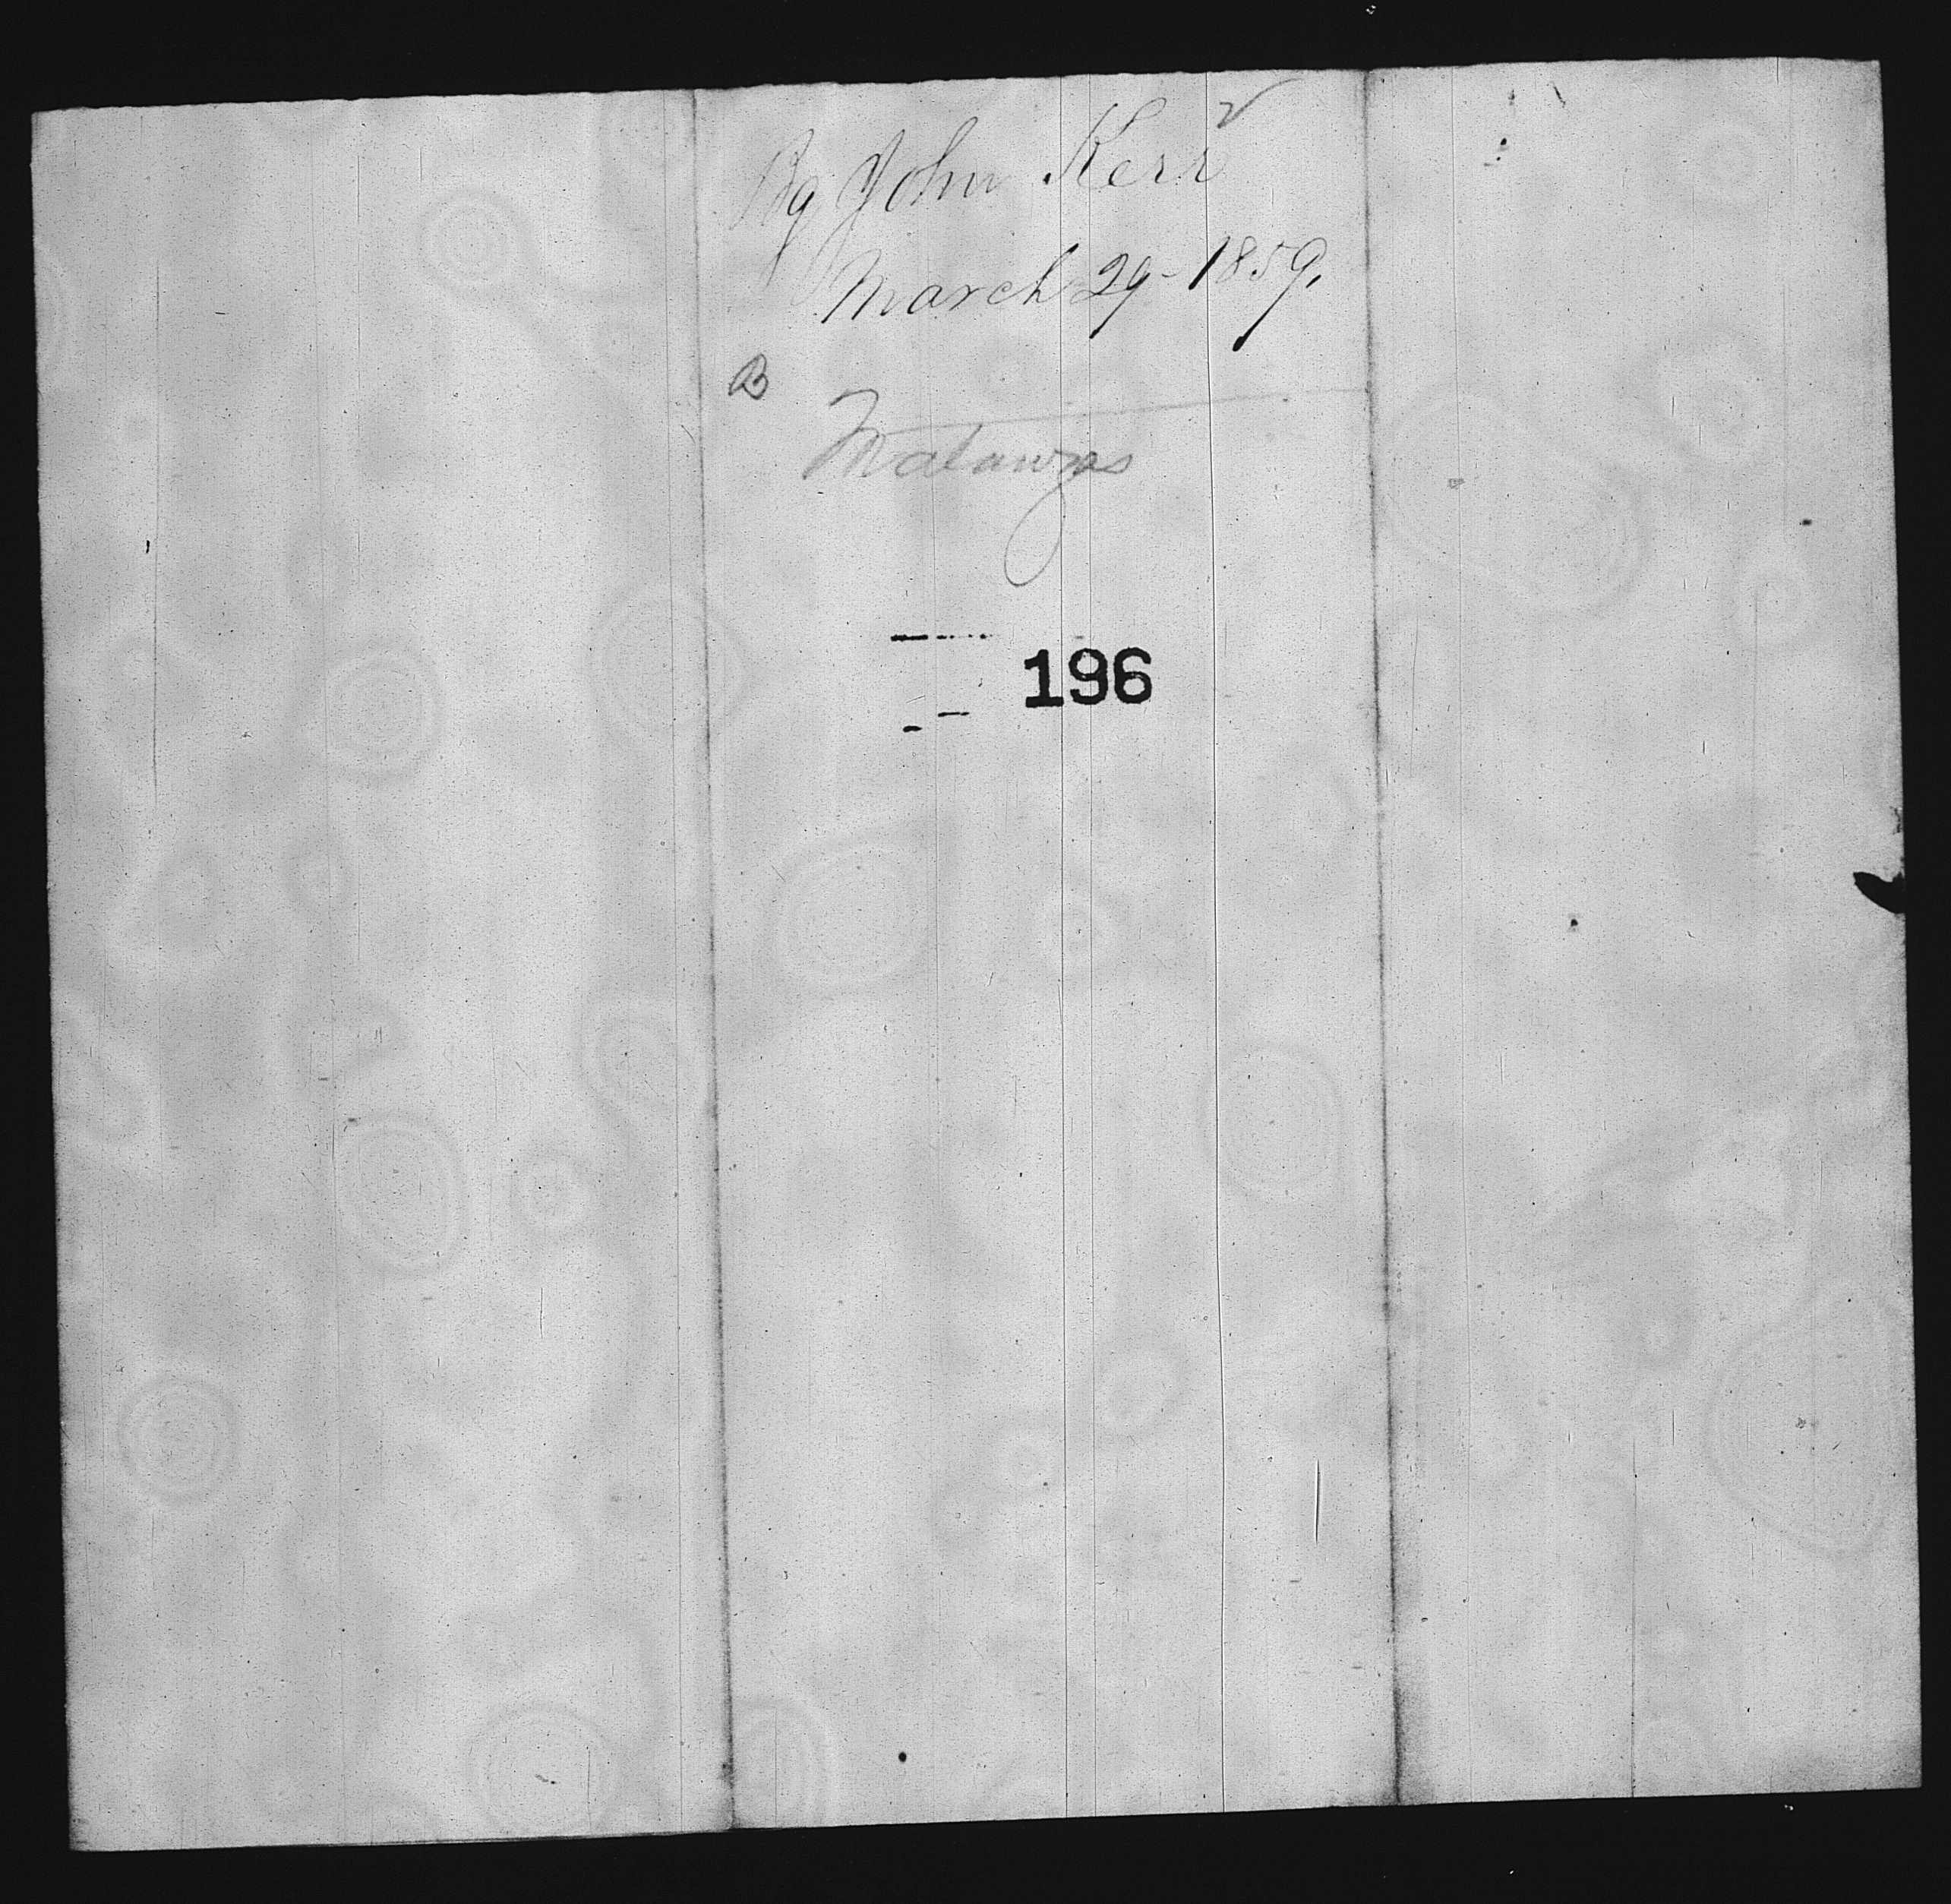 Bg John Kerr
March 29 - 1859.
B
Matanzas
196